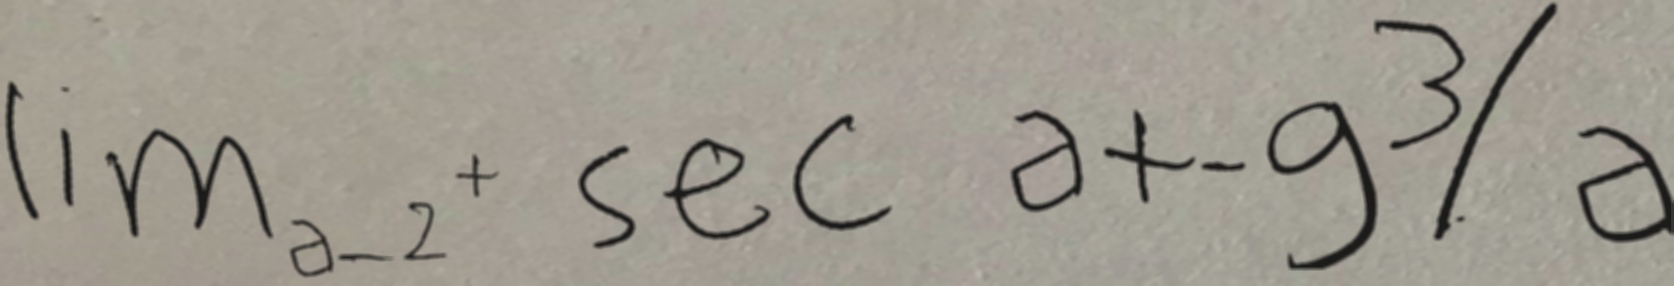 lim_{a-2}^+ sec a+-g^3/a